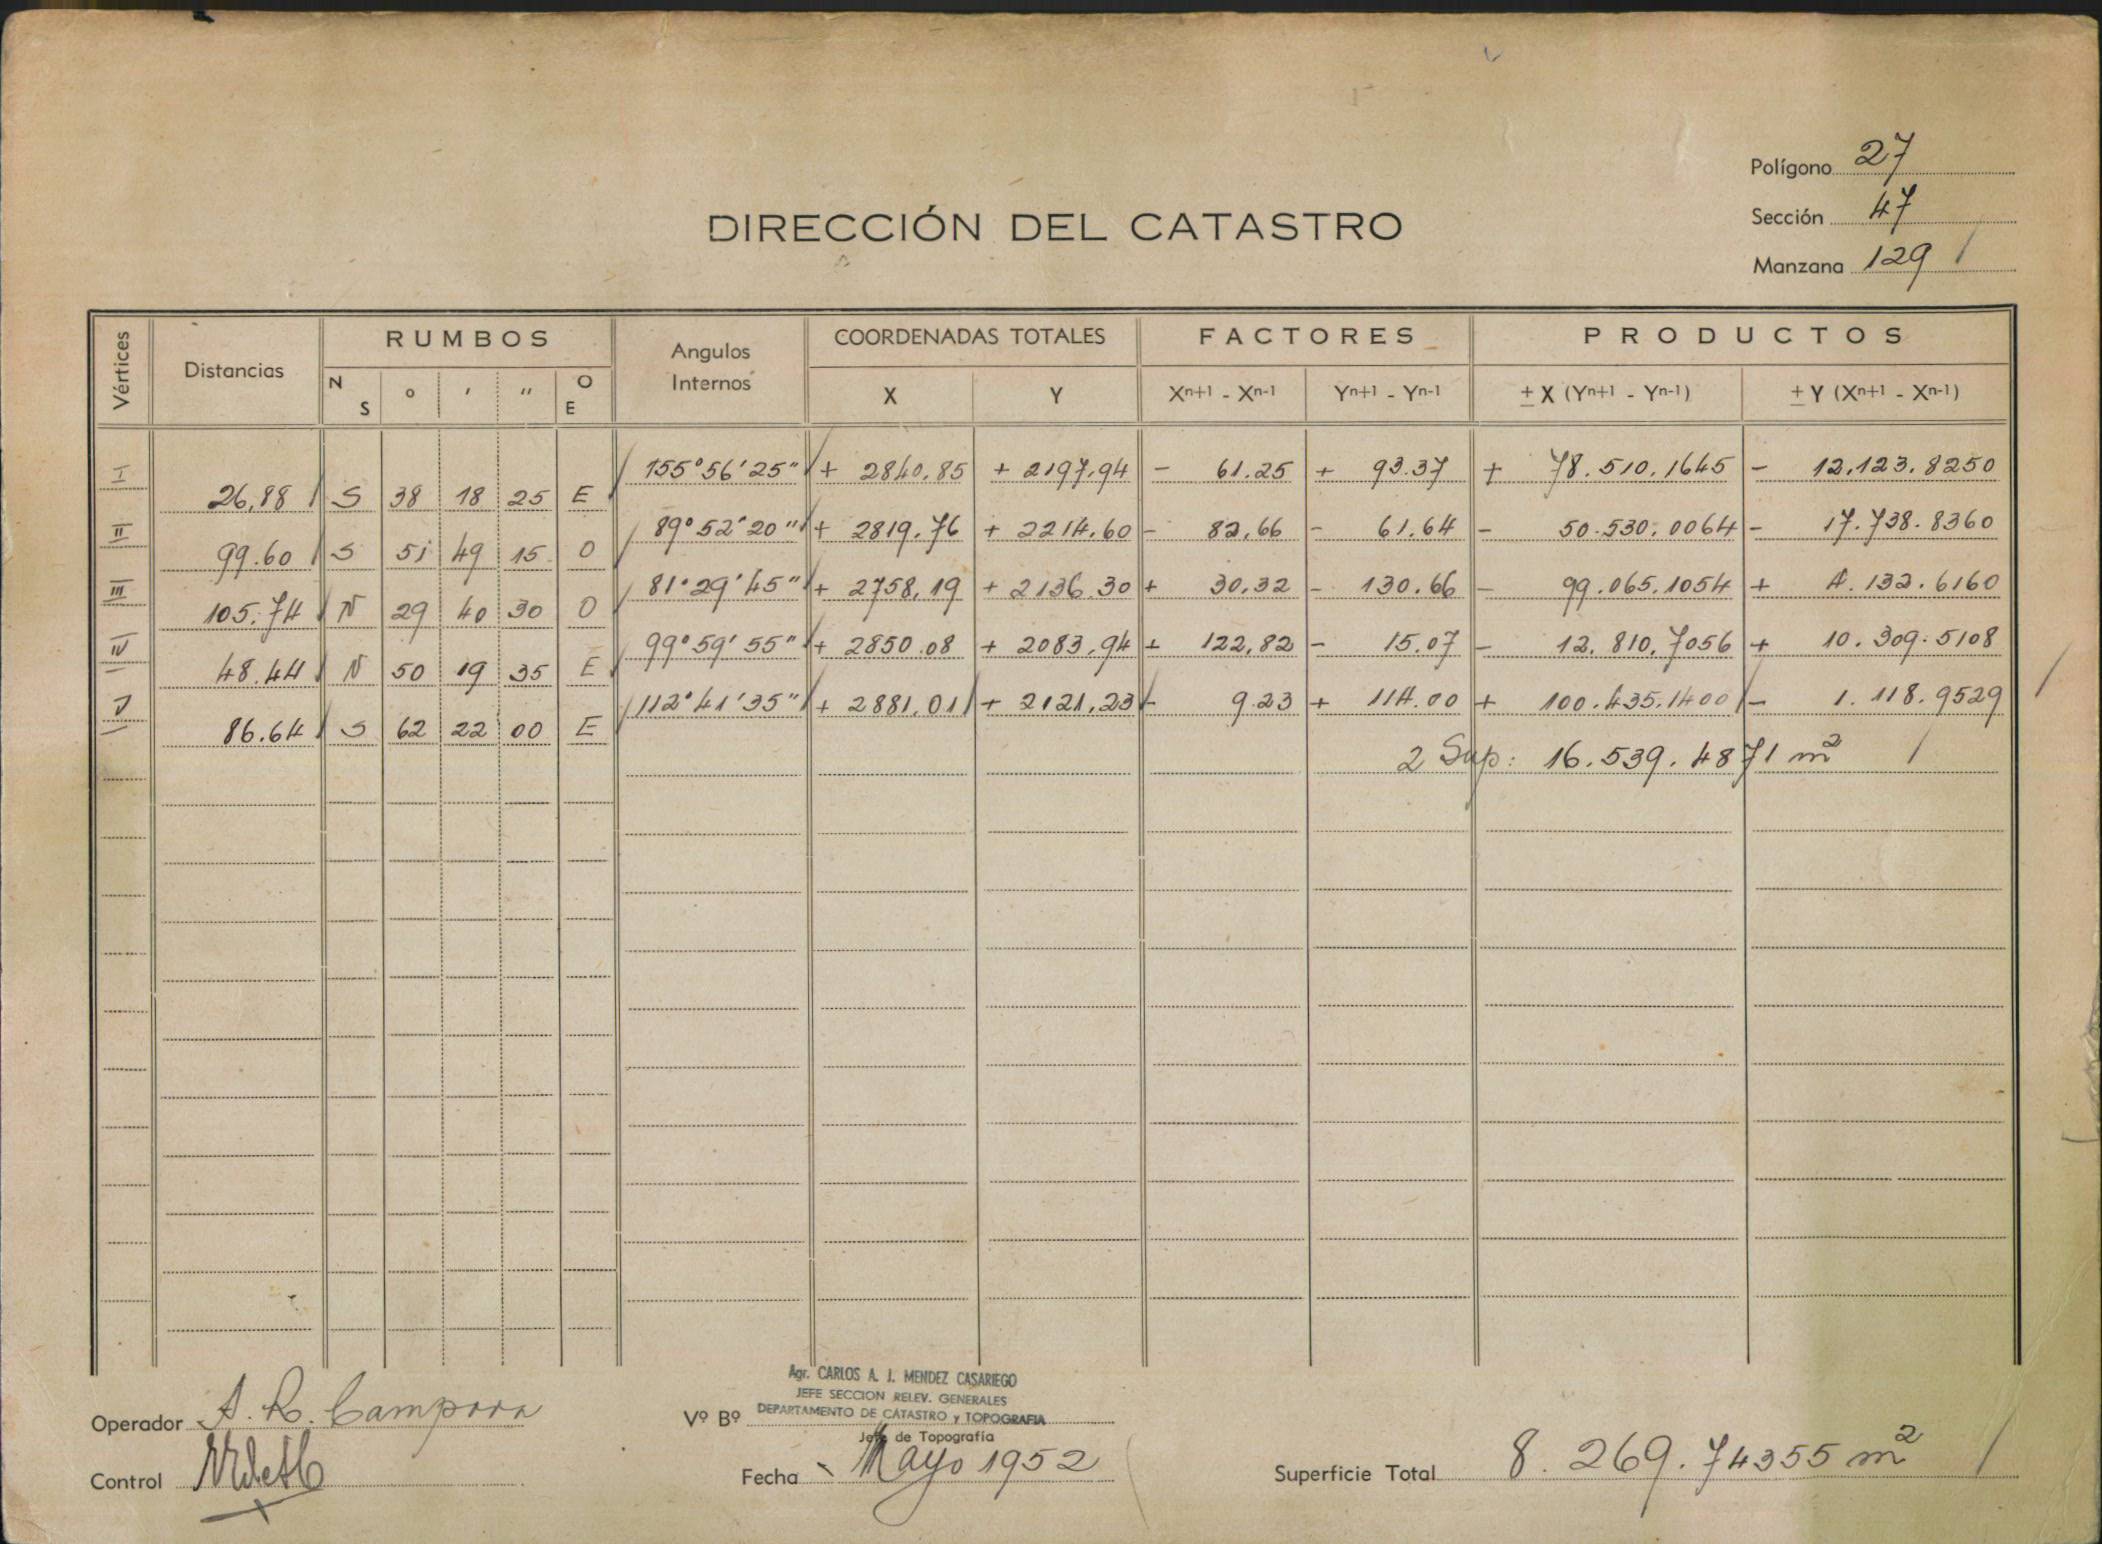 Polígono 27
Sección 47
Manzana 129
DIRECCIÓN DEL CATASTRO
Vértices Distancias RUMBOS Angulos Internos COORDENADAS TOTALES FACTORES PRODUCTOS
N S ° ' " O E X Y Xn+1 - Xn-1 Yn+1 - Yn-1 ± X (Yn+1 - Yn-1) ± Y (Xn+1 - Xn-1)
I 155°56'25" + 2840,85 + 2197,94 - 61.25 + 93.37 + 78.510.1645 - 12.123.8250
26,88 S 38 18 25 E
II 89°52'20" + 2819.76 + 2214.60 - 82,66 - 61.64 - 50.530.0064 - 17.738.8360
99.60 S 51 49 15 O
III 81°29'45" + 2758,19 + 2136.30 + 30.32 - 130.66 - 99.065.1054 + 4.132.6160
105.74 N 29 40 30 O
IV 99°59'55" + 2850.08 + 2083,94 + 122,82 - 15.07 - 12.810,7056 + 10.309.5108
48.44 N 50 19 35 E
V 112°41'35" + 2881,01 + 2121,23 - 9.23 + 114.00 + 100.435.1400 - 1.118.9529
86.64 S 62 22 00 E
2 Sup: 16.539.4871 m²
Agr. CARLOS A. J. MENDEZ CASARIEGO
JEFE SECCION RELEV. GENERALES
DEPARTAMENTO DE CATASTRO y TOPOGRAFIA
Operador A. R. Campora Vº Bº
Jefe de Topografía
Control
Fecha Mayo 1952
Superficie Total 8.269.74355 m²